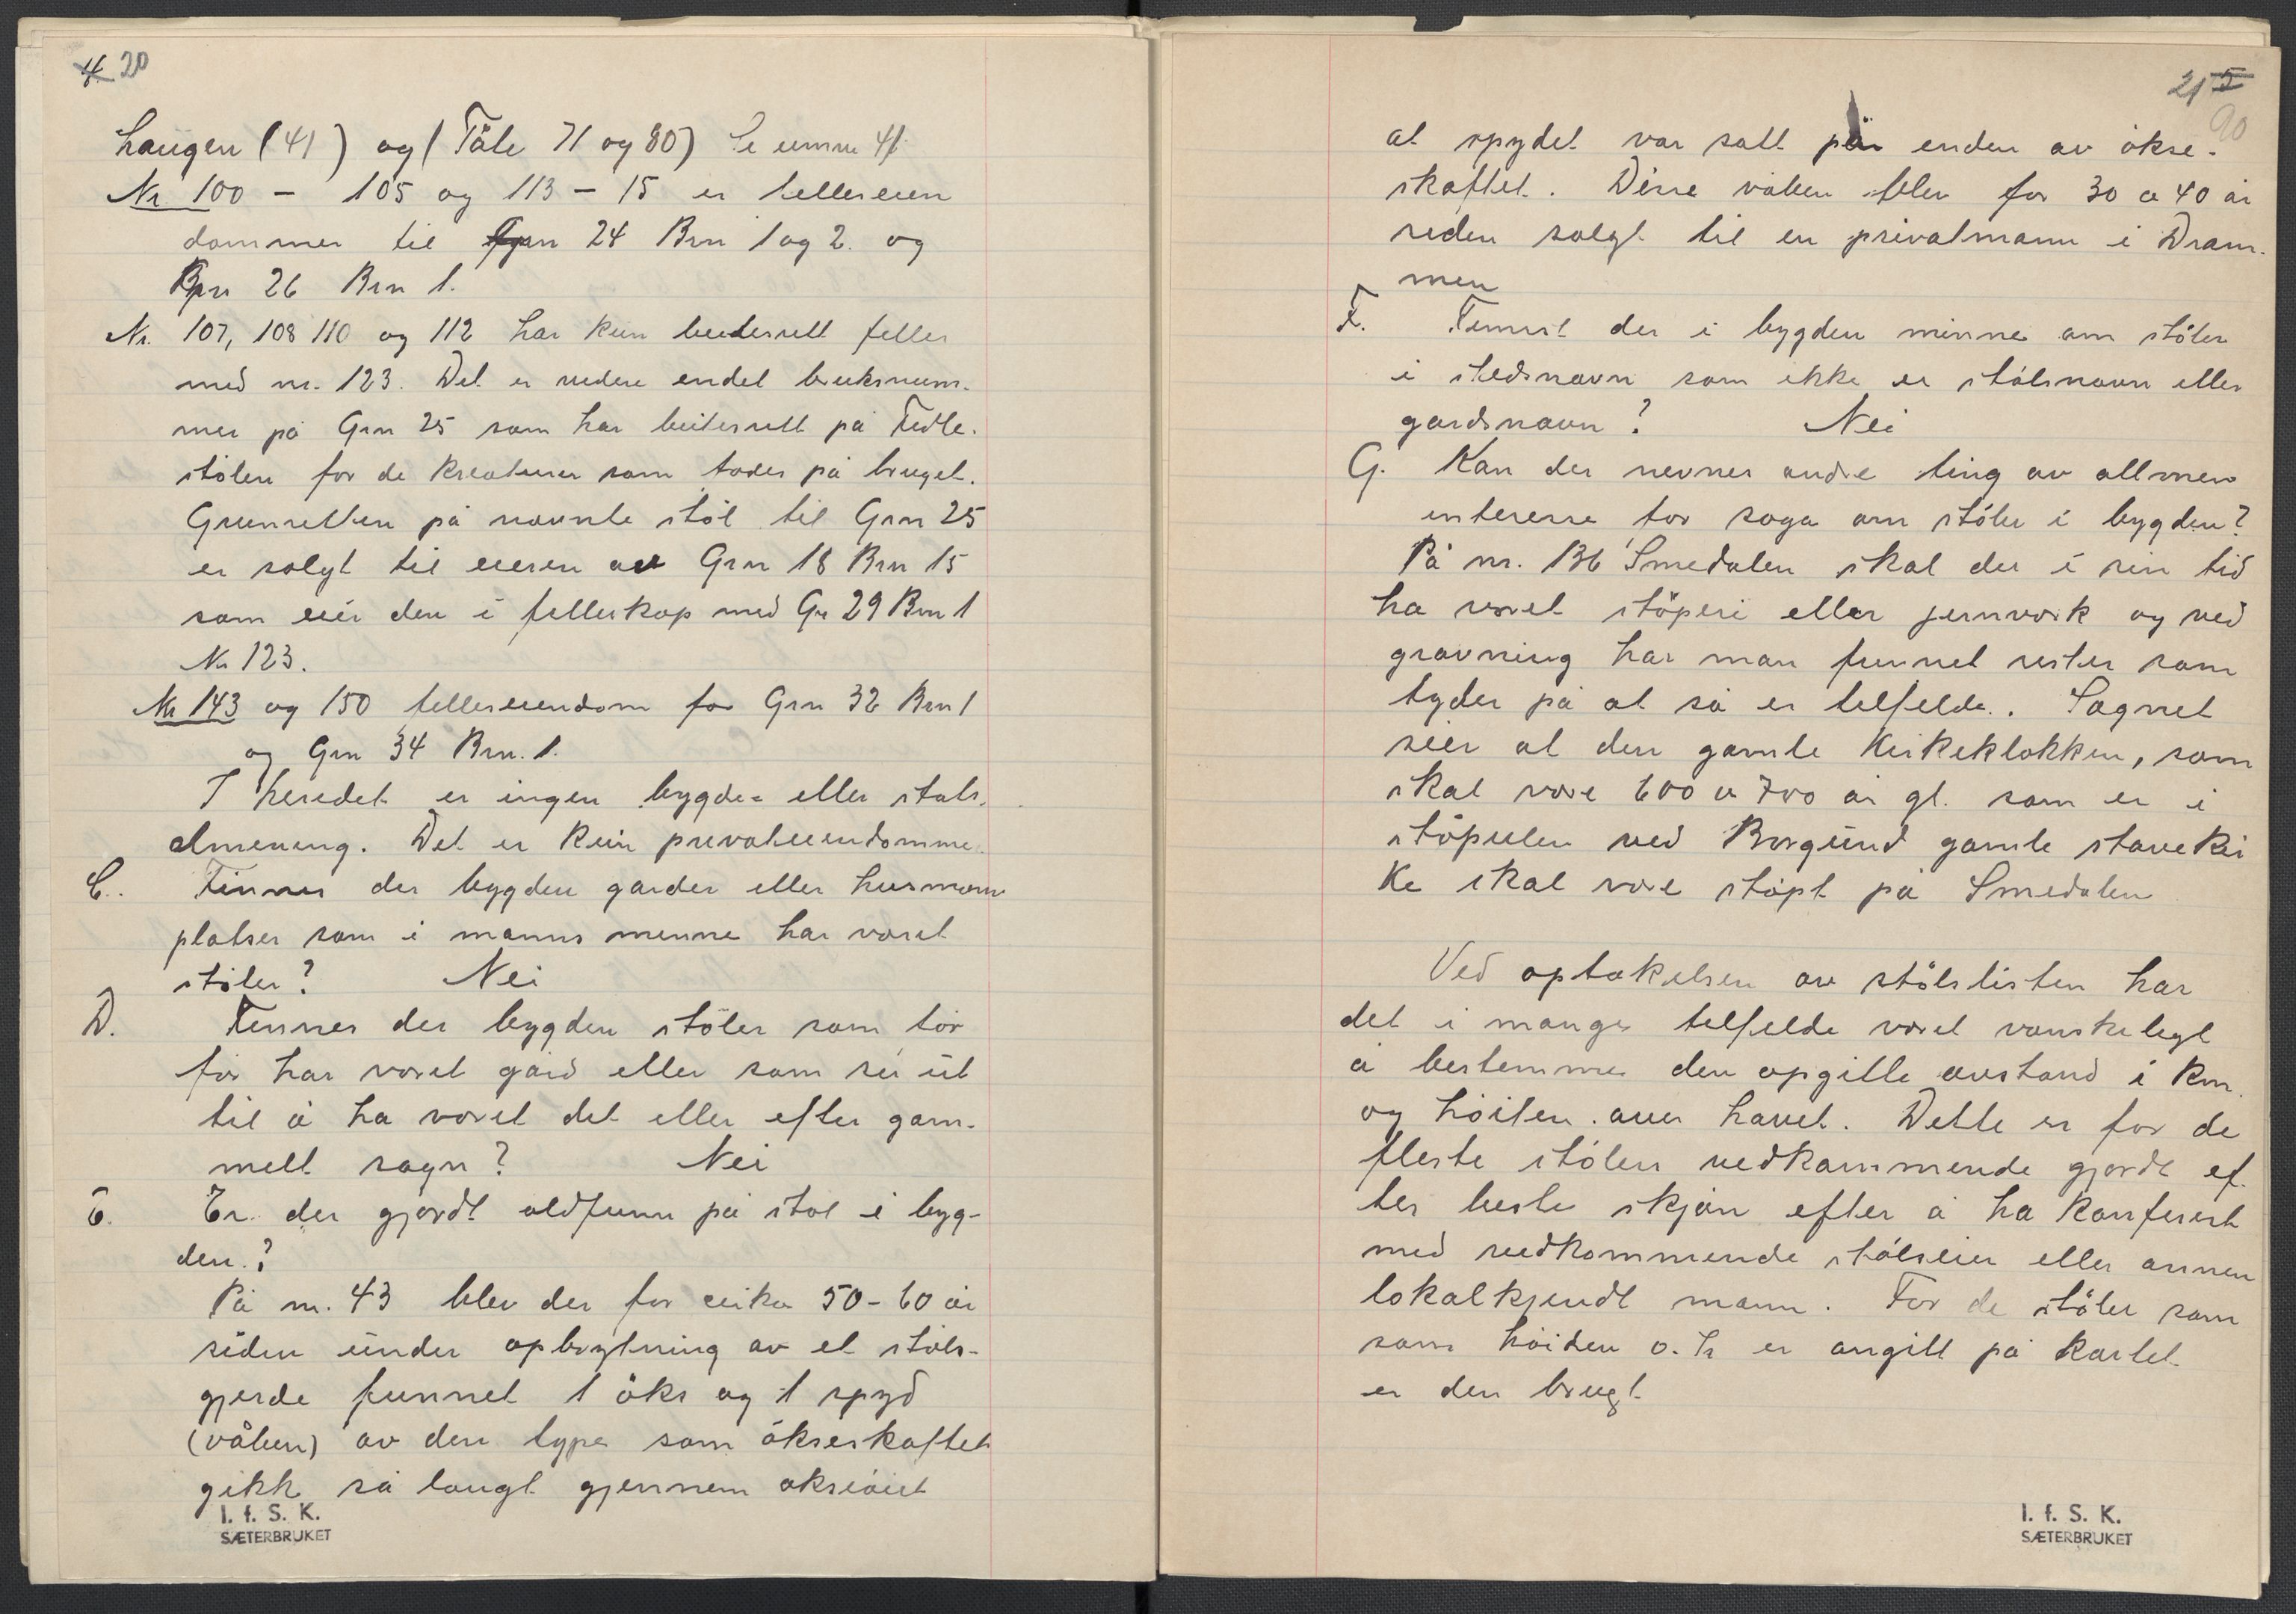 20
haugen (41) og (Tåle 71 og 80) Se 41
Nr 100 - 105 og 113 - 15 er felleseien
dommer til Grn 24 Brn 1 og 2. og
Grn 26 Brn 1.
Nr. 107, 108 110 og 112 har kun beitesrett felles
med nr. 123. Det er videre endel bruksnum-
mer på Grn 25 som har beitesrett på Fedle-
stölen for de kreaturer som födes på bruget.
Grunnretten på nævnte stöl til Grn 25
er solgt til eieren av Grn 18 Brn 15
som eier den i felleskap med Gr 29 Brn 1
Nr 123.
Nr 143 og 150 felleseiendom for Grn 32 Brn 1
og Grn 34 Brn. 1.
I heredet er ingen bygde= eller stats-
almening. Det er kun privateiendomme.
C. Finnes der bygden garder eller husmann
platser som i manns minne har været
stöler? Nei
D. Finnes der bygden stöler som för
för har været gård eller som ser ut
til å ha været det eller efter gam-
melt sagn? Nei
E. Er der gjordt oldfunn på stöl i byg-
den.?
På nr. 43 blev der for cirka 50-60 år
siden under opbrytning av et støls-
gjerde funnet 1 öks og 1 spyd
(våben) av den type som ökseskaftet
gikk så langt gjennem øksiöiet
I. f. S. K.
SÆTERBRUKET
21
90
at spydet var satt på enden av ökse-
skaftet. Disse våben blev for 30 a 40 år
siden solgt til en privatmann i Dram-
men
F. Finnst der i bygden minne om stöler
i stedsnavn som ikke er stölsnavn eller
gardsnavn? Nei
G. Kan der nevnes andre ting av allmen
interesse for soga om stöler i bygden?
På nr. 136 Smedalen skal der i sin tid
ha været stöperi eller jernverk og ved
gravning har man funnet rester som
tyder på at så er tilfelde. Sagnet
sier at den gamle Kirkeklokken, som
skal være 600 a 700 år gl. som er i
stöpulen ved Borgund gamle stavekir
ke skal være stöpt på Smedalen
Ved optakelsen av stölslisten har
det i mange tilfelde været vanskelegt
å bestemme den opgitte avstand i km.
og höiden over havet. Dette er for de
fleste stölers vedkommende gjordt ef-
ter beste skjön efter å ha konferert
med vedkommende stölseier eller annen
lokalkjendt mann. For de stöler som
som höiden o. h er angitt på kartet
er den brugt
I. f. S. K.
SÆTERBRUKET